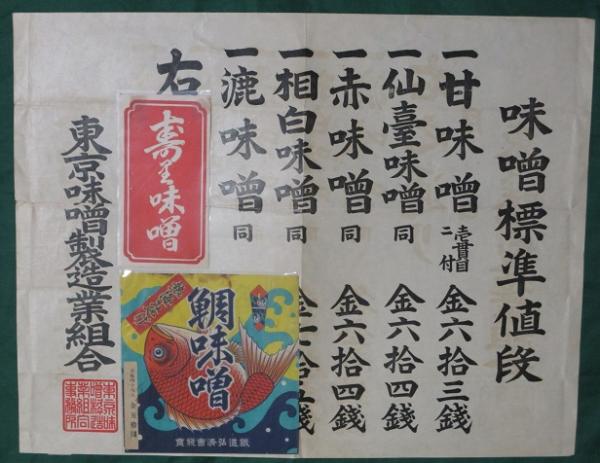 味噌標準値段
一甘味噌 壱貫目ニ付 金六拾三銭
一仙臺味噌 同 金六拾四銭
一赤味噌 同 金六拾四銭
一相白味噌 同
一漉味噌 同
右
東京味噌製造業組合
寿之味噌
鯛味噌